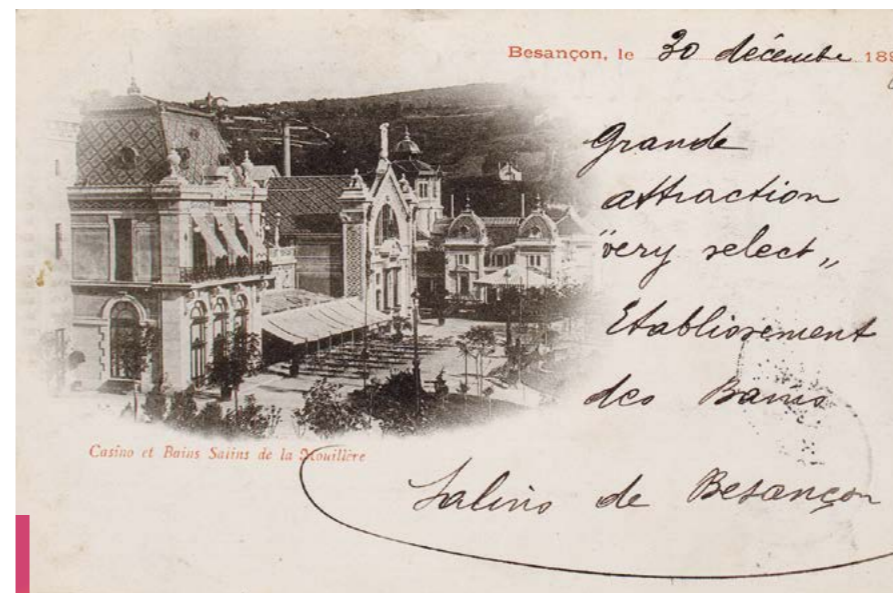 Besançon, le 30 décembre 189
Grande
attraction
"very select„
Etablissement
des Bains
Salins de Besançon
Casino et Bains Salins de la Mouillère